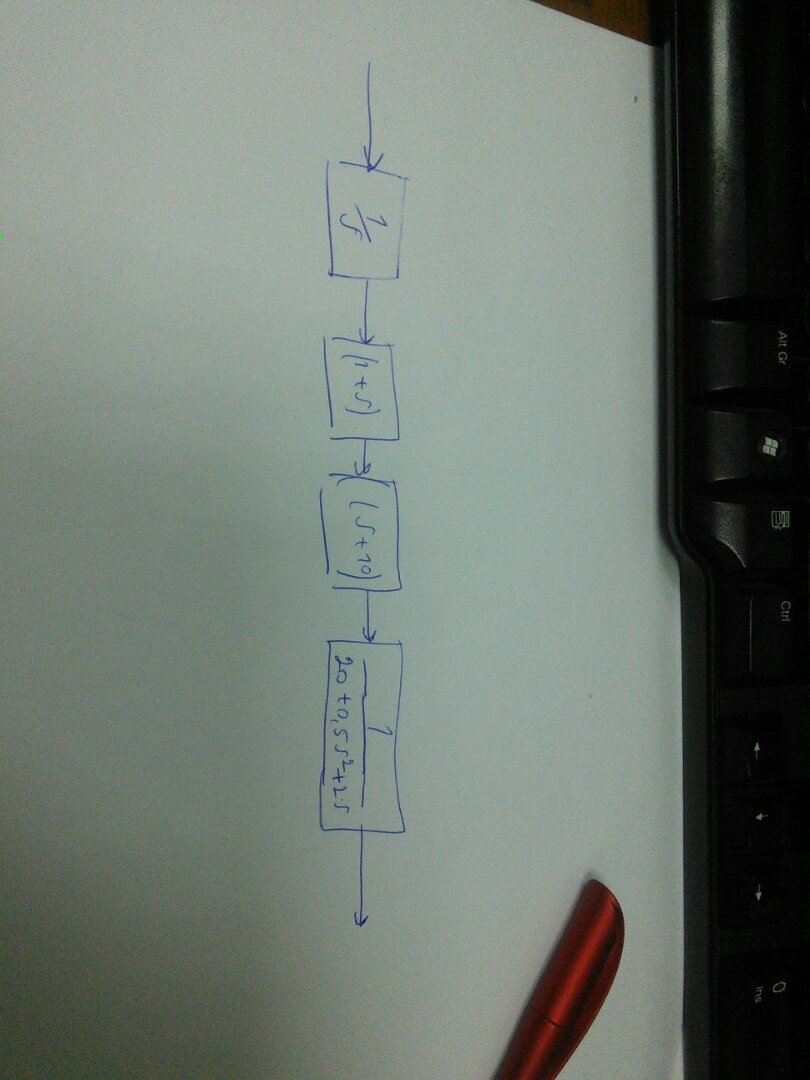 Alt Gr
Ctrl
←
↓
→
0
Ins
1/s
(1+s)
(s+10)
1
20+0,5s²+2s